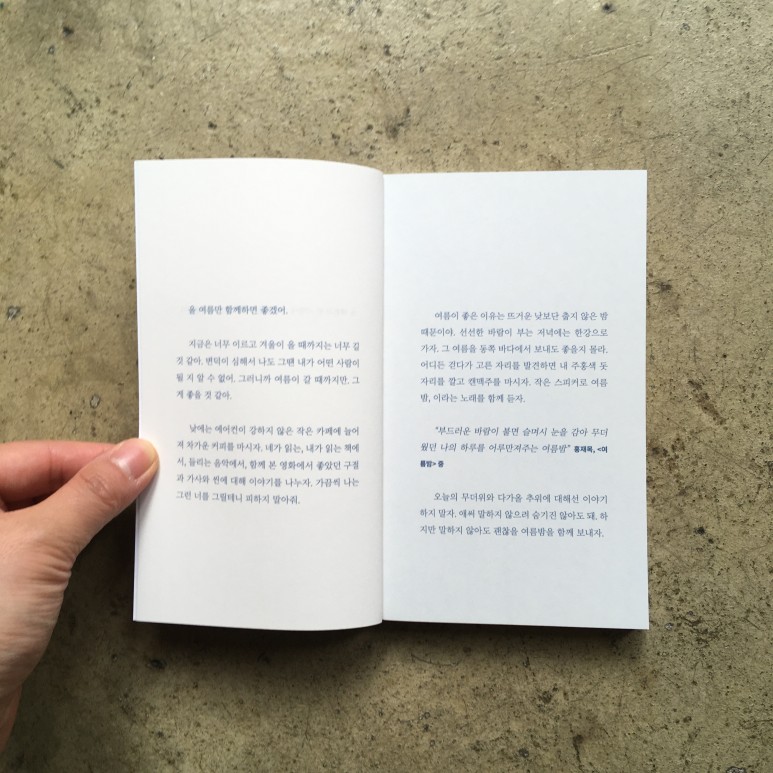 올 여름만 함께하면 좋겠어.
지금은 너무 이르고 겨울이 올 때까지는 너무 길
것 같아. 변덕이 심해서 나도 그땐 내가 어떤 사람이
될 지 알 수 없어. 그러니까 여름이 갈 때까지만. 그
게 좋을 것 같아.
낮에는 에어컨이 강하지 않은 작은 카페에 늘어
져 차가운 커피를 마시자. 네가 읽는, 내가 읽는 책에
서, 들리는 음악에서, 함께 본 영화에서 좋았던 구절
과 가사와 씬에 대해 이야기를 나누자. 가끔씩 나는
그런 너를 그릴테니 피하지 말아줘.
여름이 좋은 이유는 뜨거운 낮보단 춥지 않은 밤
때문이야. 선선한 바람이 부는 저녁에는 한강으로
가자. 그 여름을 동쪽 바다에서 보내도 좋을지 몰라.
어디든 걷다가 고른 자리를 발견하면 내 주홍색 돗
자리를 깔고 캔맥주를 마시자. 작은 스피커로 여름
밤, 이라는 노래를 함께 듣자.
“부드러운 바람이 불면 슬며시 눈을 감아 무더
웠던 나의 하루를 어루만져주는 여름밤” 홍재목, <여
름밤> 중
오늘의 무더위와 다가올 추위에 대해선 이야기
하지 말자. 애써 말하지 않으려 숨기진 않아도 돼. 하
지만 말하지 않아도 괜찮을 여름밤을 함께 보내자.